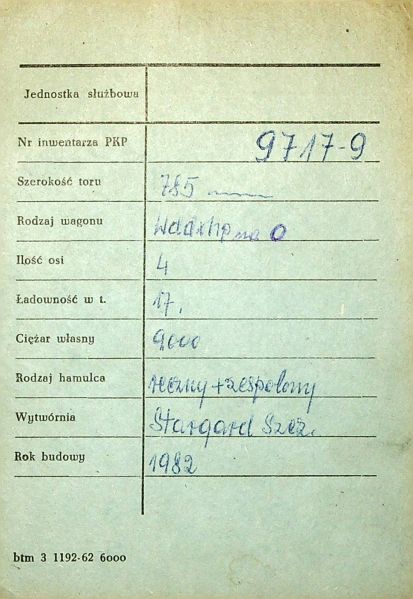 Jednostka służbowa
Nr inwentarza PKP 9717-9
Szerokość toru 785
Rodzaj wagonu
Ilość osi 4
Ładowność w t. 17,
Ciężar własny 9000
Rodzaj hamulca ręczny + zespolony
Wytwórnia Stargard Szcz.
Rok budowy 1982
btm 3 1192-62 6000